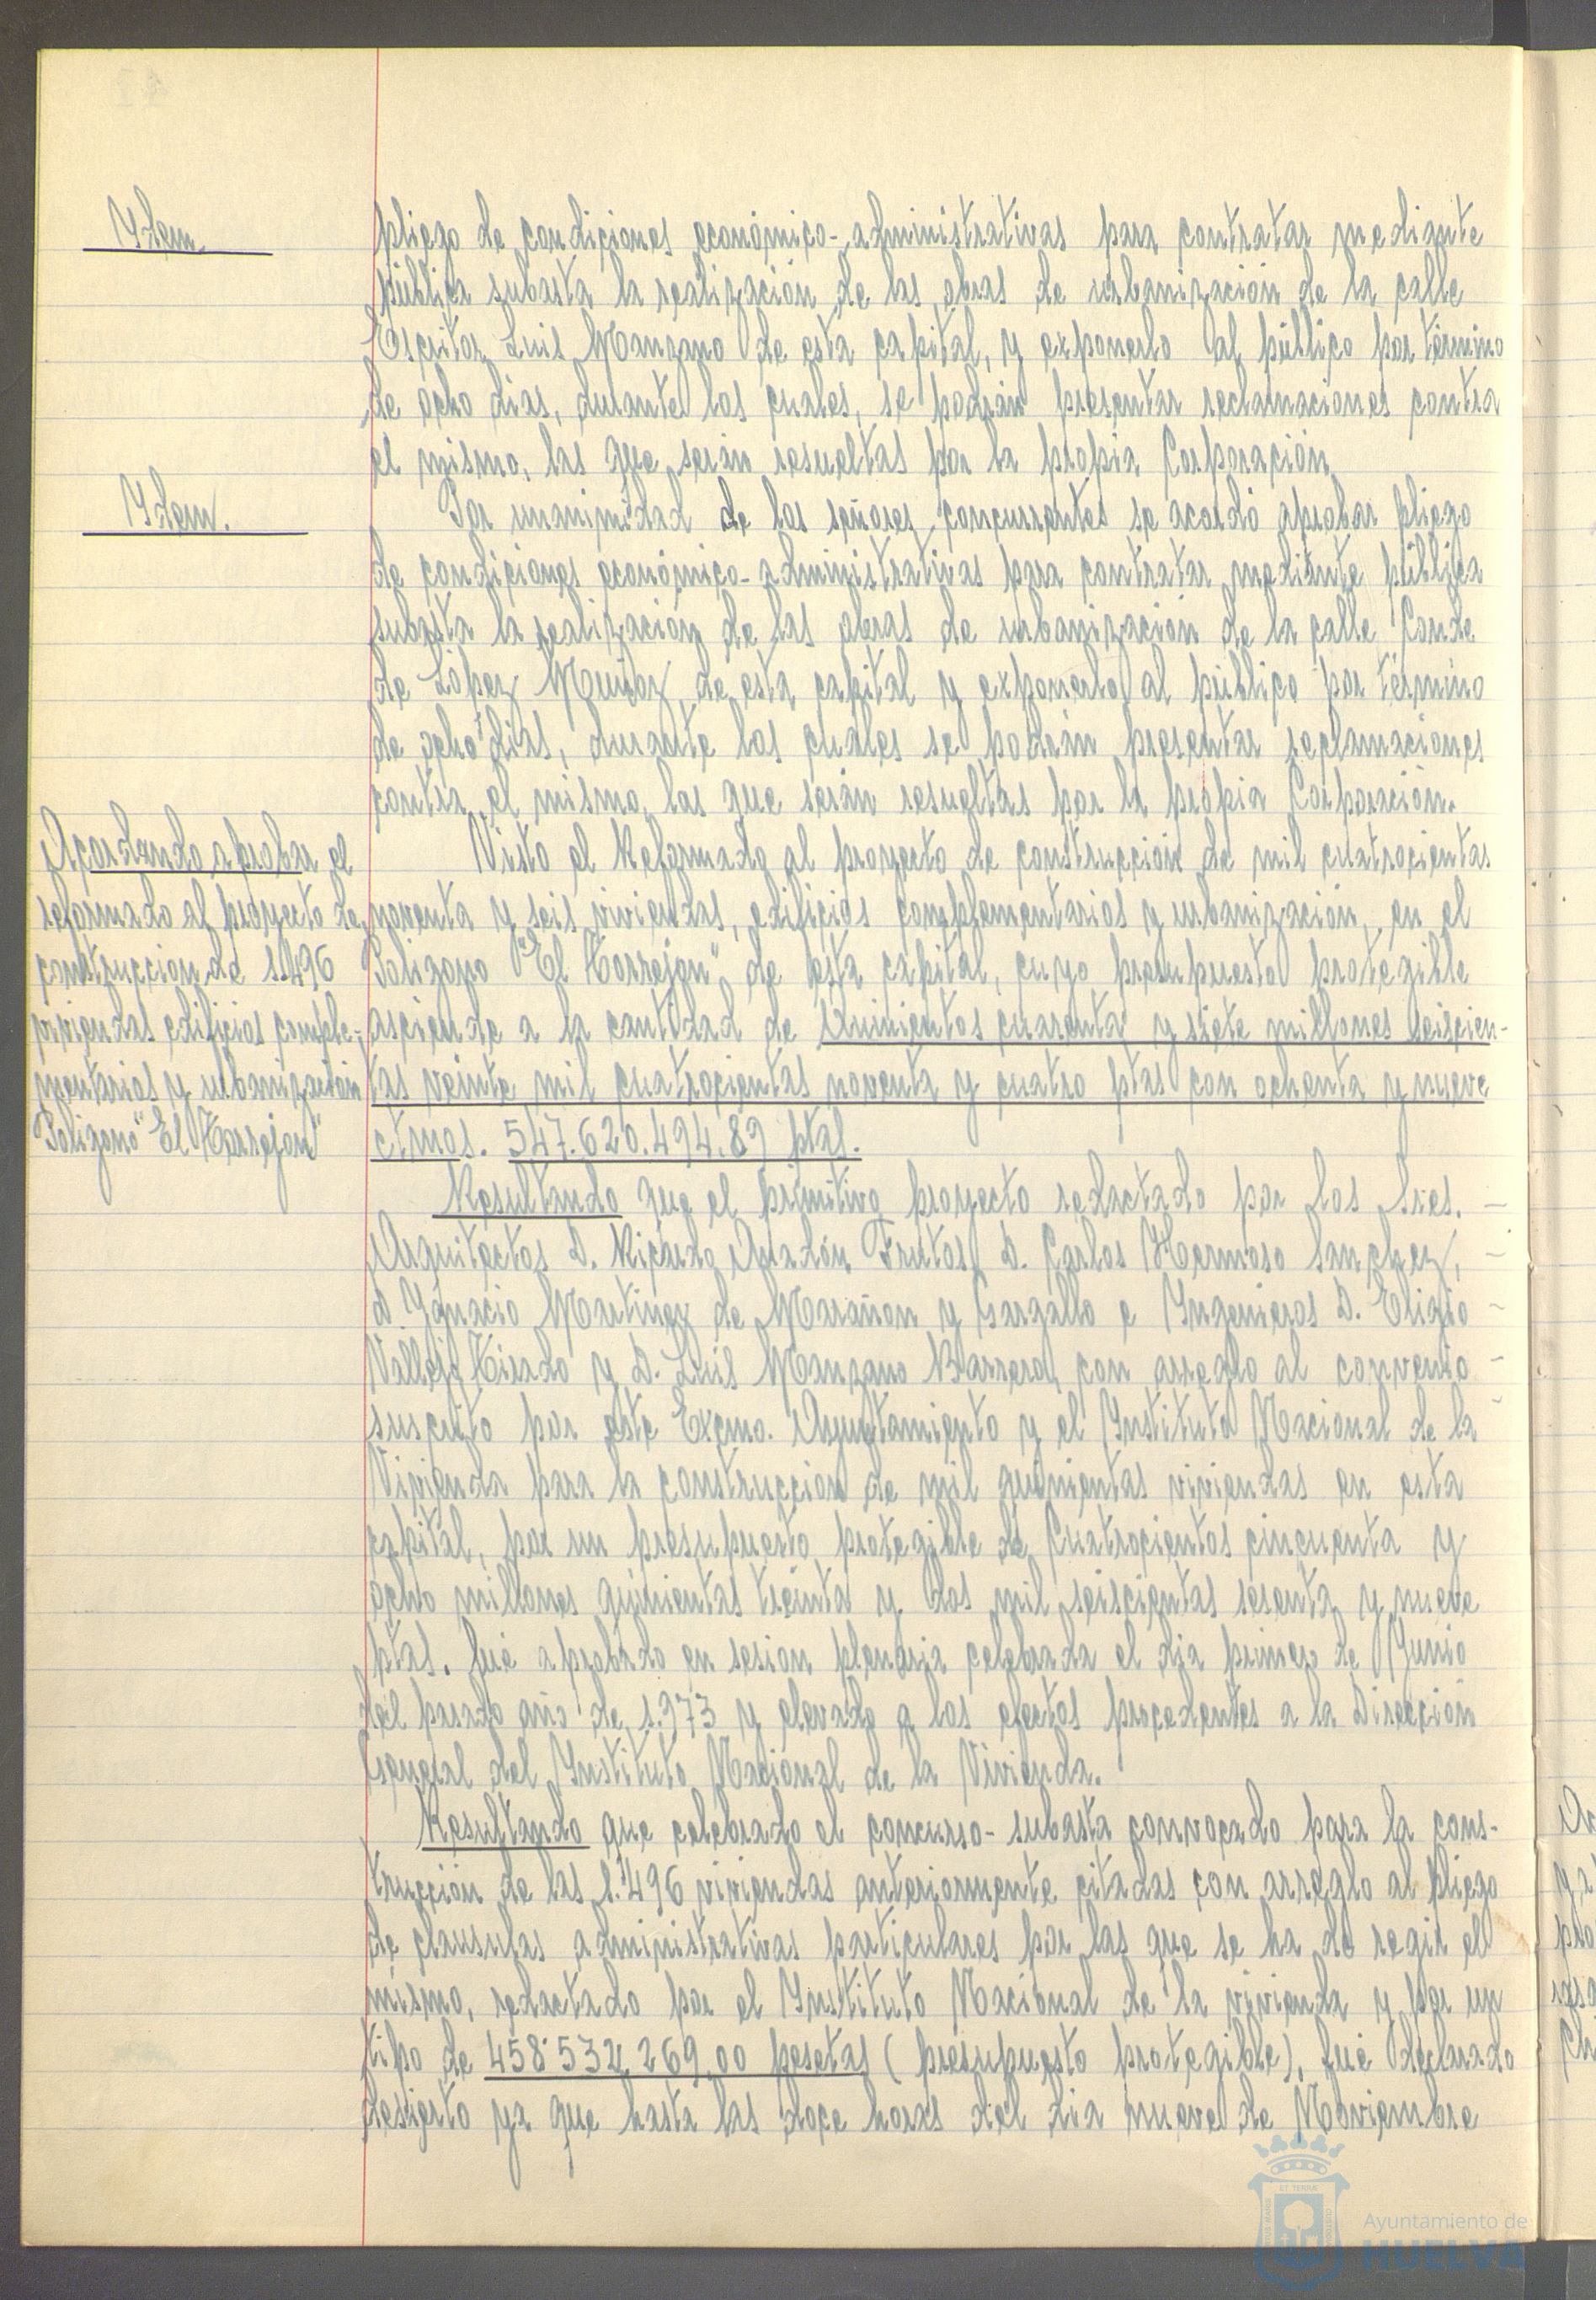 Ydem
pliego de condiciones económico-administrativas para contratar mediante
pública subasta la realización de las obras de urbanización de la calle
Escritor Luis Manzano de esta capital, y exponerlo al público por término
de ocho dias, durante los cuales, se podrán presentar reclamaciones contra
el mismo, las que serán resueltas por la propia Corporación.
Ydem.
Por unanimidad de los señores concurrentes se acordó aprobar pliego
de condiciones económico-administrativas para contratar mediante pública
subasta la realización de las obras de urbanización de la calle Conde
de López Muñoz de esta capital y exponerlo al público por término
de ocho dias, durante los cuales se podrán presentar reclamaciones
contra el mismo, las que serán resueltas por la propia Corporación.
Acordando aprobar el
reformado al proyecto de
construccion de 1.496
viviendas edificios comple-
mentarios y urbanización
Poligono "El Torrejon"
Visto el Reformado al proyecto de construcción de mil cuatrocientas
noventa y seis viviendas, edificios complementarios y urbanización, en el
Poligono "El Torrejon", de esta capital, cuyo presupuesto protegible
asciende a la cantidad de Quinientos cuarenta y siete millones seiscien-
tas veinte mil cuatrocientas noventa y cuatro ptas con ochenta y nueve
ctmos. 547.620.494,89 ptas.
Resultando que el primitivo proyecto redactado por los Sres.
Arquitectos D. Ricardo Anadón Frutos, D. Carlos Hermoso Sanchez,
D. Ygnacio Martinez de Marañon y Gargallo e Yngenieros D. Eligio
Vallejo Tirado y D. Luis Manzano Barrero, con arreglo al convenio
suscrito por este Excmo. Ayuntamiento y el Ynstituto Nacional de la
Vivienda para la construccion de mil quinientas viviendas en esta
capital, por un presupuesto protegible de Cuatrocientos cincuenta y
ocho millones quinientas treinta y dos mil seiscientas sesenta y nueve
ptas. fué aprobado en sesion plenaria celebrada el dia primero de Junio
del pasado año de 1.973 y elevado a los efectos procedentes a la Dirección
General del Ynstituto Nacional de la Vivienda.
Resultando que celebrado el concurso-subasta convocado para la cons-
trucción de las 1.496 viviendas anteriormente citadas con arreglo al pliego
de clausulas administrativas particulares por las que se ha de regir el
mismo, redactado por el Ynstituto Nacional de la vivienda y por un
tipo de 458.532.269,00 pesetas (presupuesto protegible), fué declarado
desierto ya que hasta las doce horas del dia nueve de Noviembre
Ayuntamiento de
HUELVA